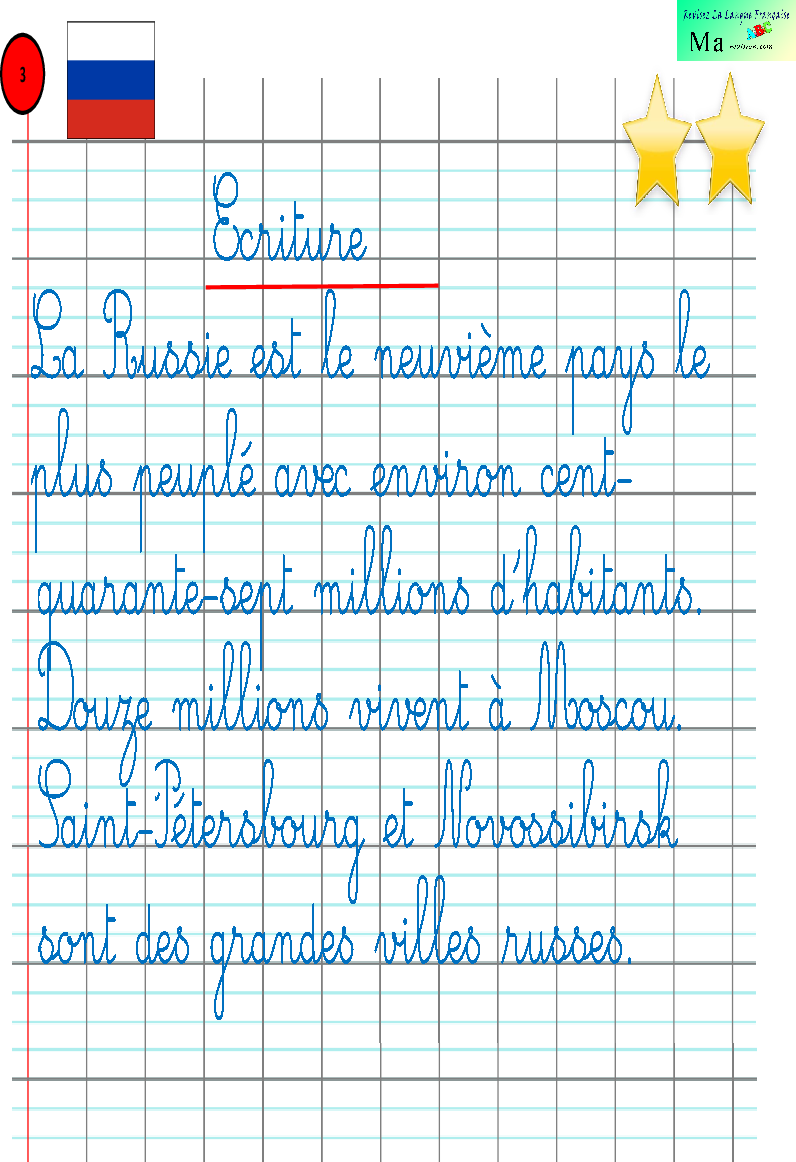 Revisez La Langue Française
Ma
revision.com
3
Ecriture
La Russie est le neuvième pays le
plus peuplé avec environ cent-
quarante-sept millions d'habitants.
Douze millions vivent à Moscou.
Saint-Pétersbourg et Novossibirsk
sont des grandes villes russes.